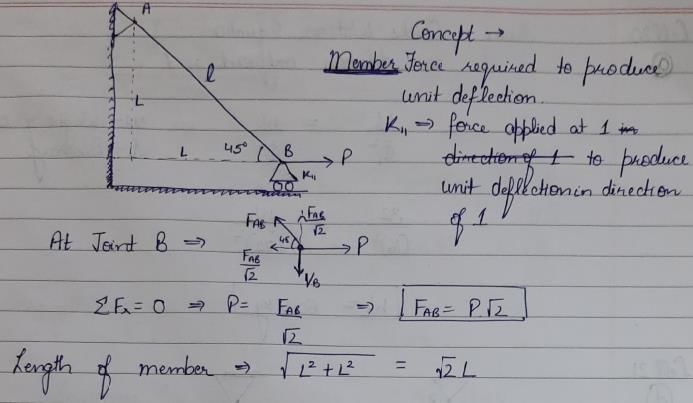 A
Concept →
Member Force required to produce
unit deflection.
l
L
K₁₁ ⇒ force applied at 1 in
direction of 1 to produce
unit deflection in direction
of 1
L
45°
B
P
K₁₁
At Joint B ⇒
F_AB
F_AB/√2
45
F_AB/√2
P
V_B
ΣFₓ = 0 ⇒ P = F_AB/√2 ⇒ F_AB = P√2
Length of member ⇒ √(L² + L²) = √2 L